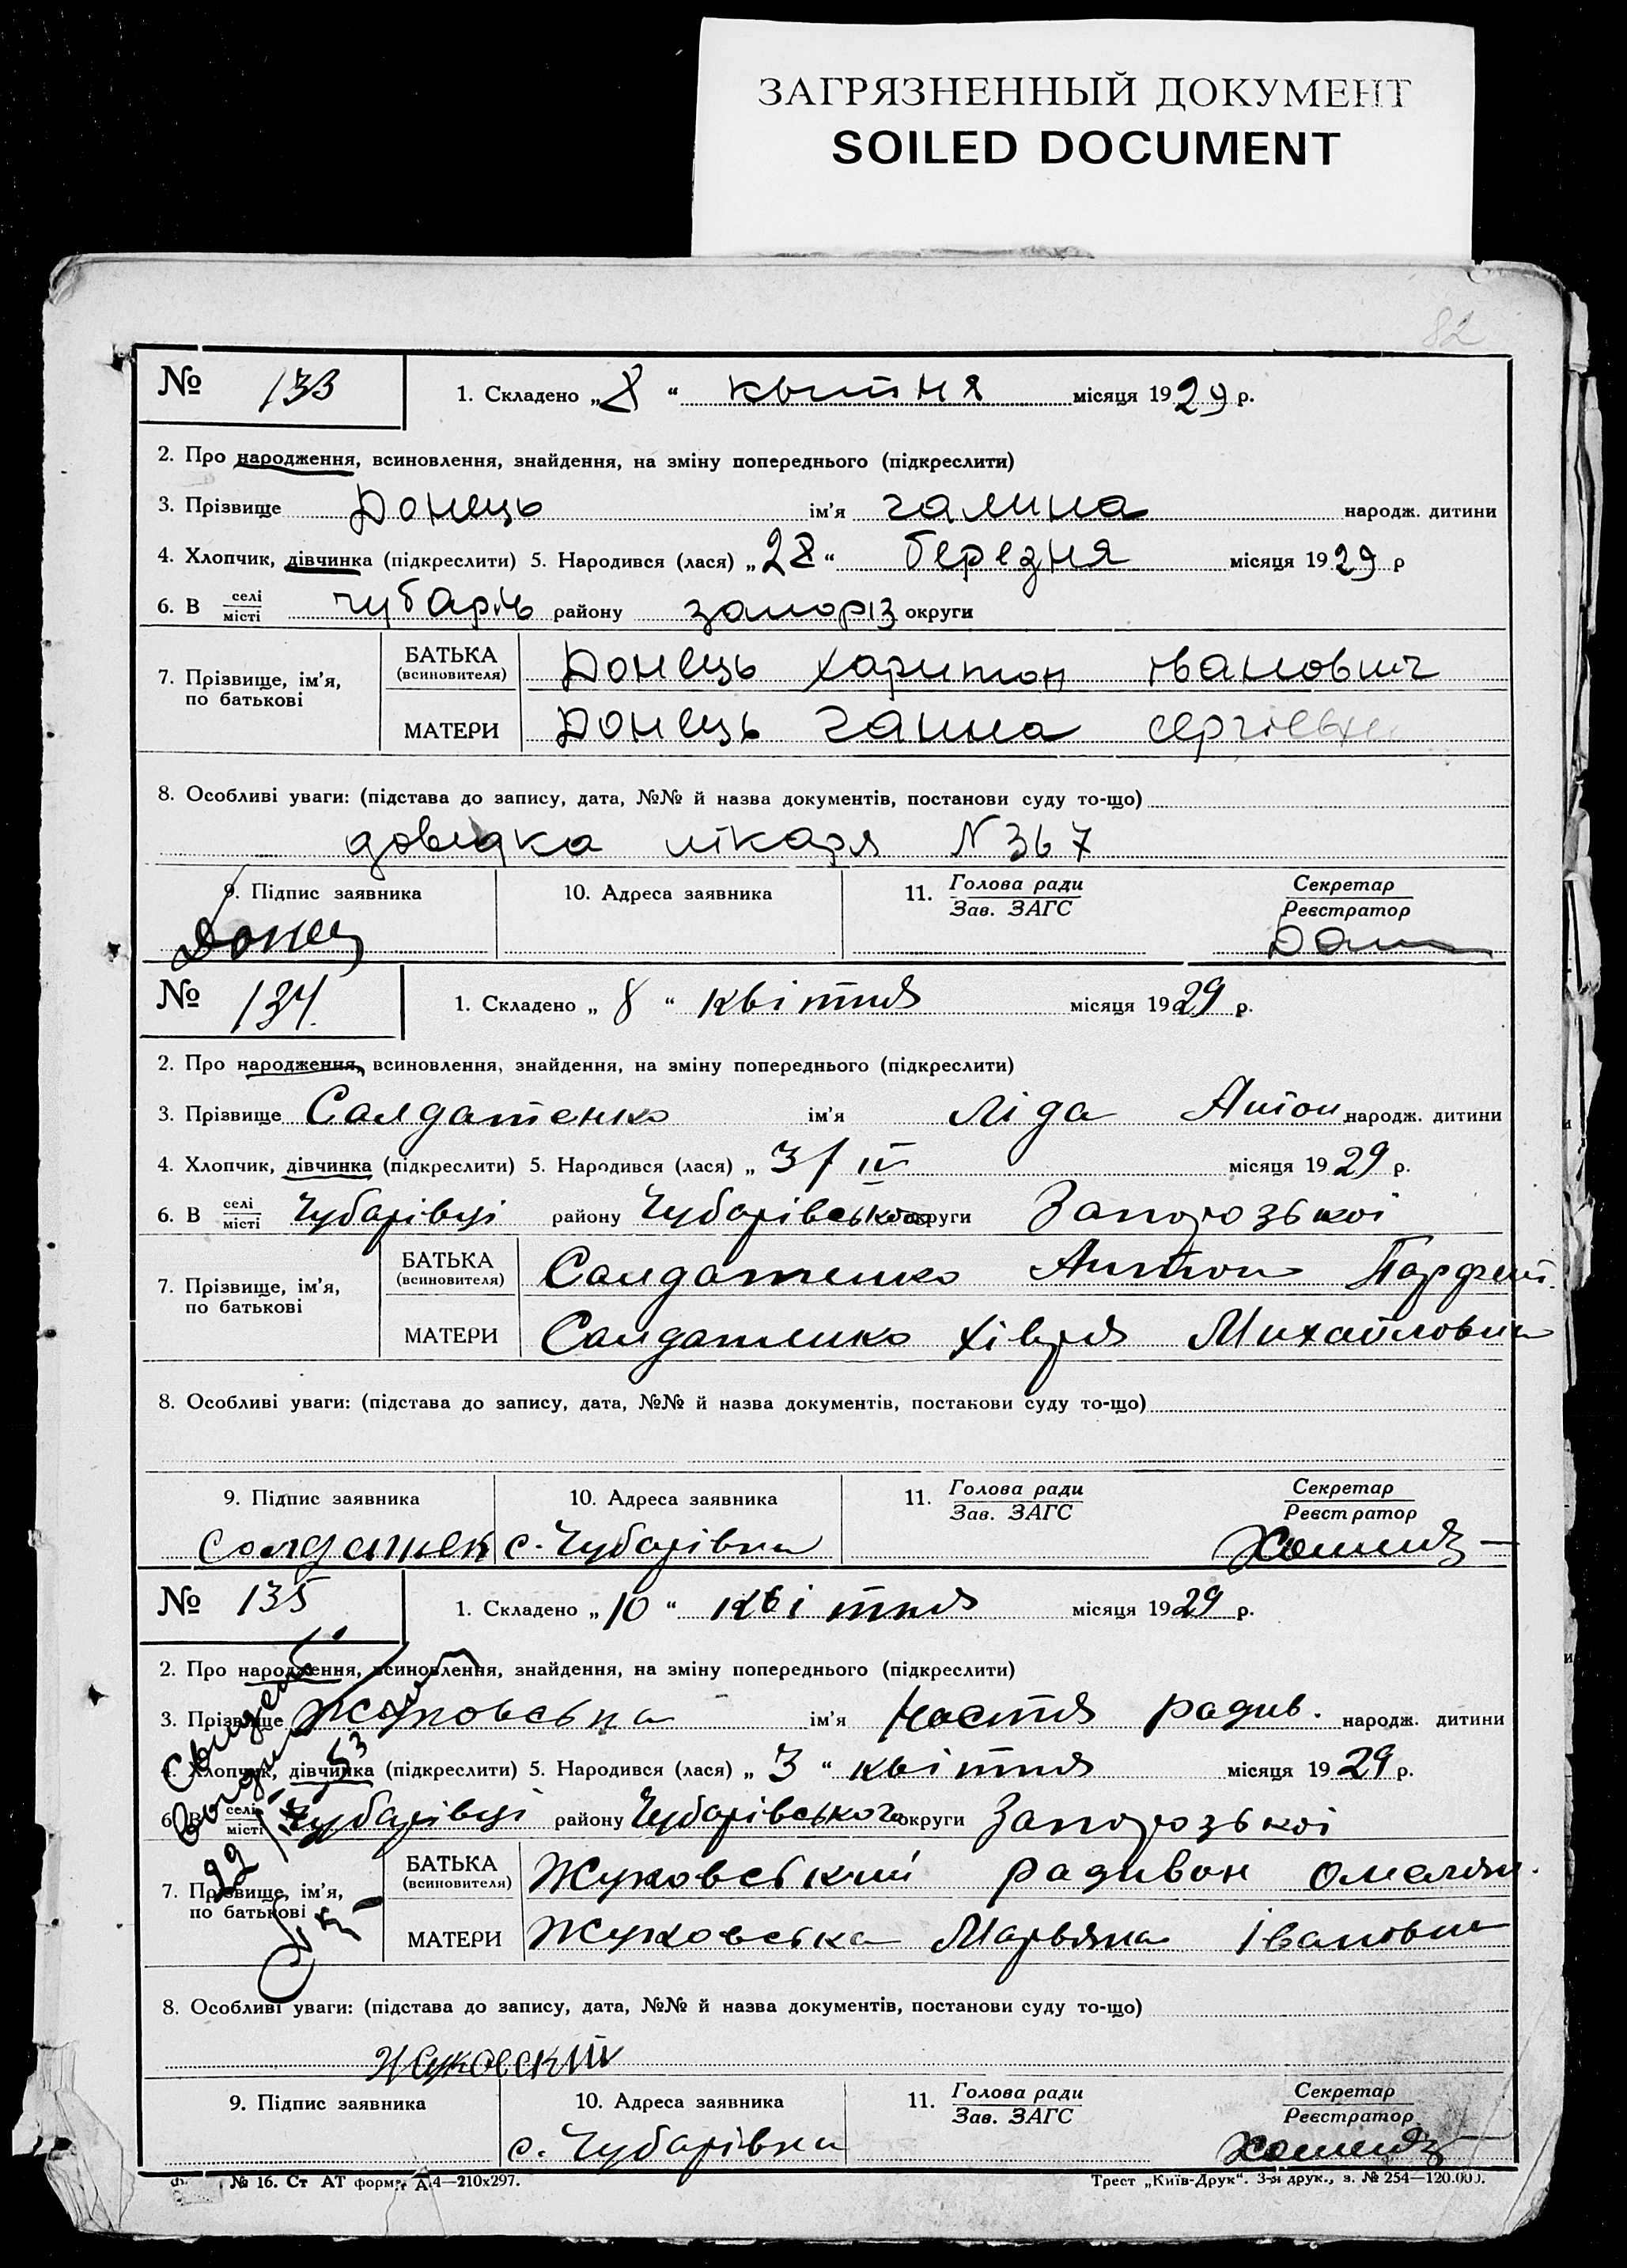 ЗАГРЯЗНЕННЫЙ ДОКУМЕНТ
SOILED DOCUMENT
82
№ 133
1. Складено „8“ квітня місяця 1929 р.
2. Про народження, всиновлення, знайдення, на зміну попереднього (підкреслити)
3. Прізвище Донець ім'я галина народж. дитини
4. Хлопчик, дівчинка (підкреслити) 5. Народився (лася) „28“ березня місяця 1929 р
6. В селі місті чубарів району запоріз округи
7. Прізвище, ім'я, по батькові
БАТЬКА (всиновителя) Донець харитон іванович
МАТЕРИ Донець ганна
8. Особливі уваги: (підстава до запису, дата, №№ й назва документів, постанови суду то-що)
довидка лікаря N 367
9. Підпис заявника 10. Адреса заявника 11. Голова ради Зав. ЗАГС Секретар Реєстратор
Донец
№ 134.
1. Складено „8“ квітня місяця 1929 р.
2. Про народження, всиновлення, знайдення, на зміну попереднього (підкреслити)
3. Прізвище Салдатенко ім'я Ліда Антон народж. дитини
4. Хлопчик, дівчинка (підкреслити) 5. Народився (лася) „ 3/IV місяця 1929 р.
6. В селі місті Чубарівці району Чубарівського округи Запорозької
7. Прізвище, ім'я, по батькові
БАТЬКА (всиновителя) Салдатенко Антон Парфент.
МАТЕРИ Салдатенко Хівря Михайловна
8. Особливі уваги: (підстава до запису, дата, №№ й назва документів, постанови суду то-що)
9. Підпис заявника 10. Адреса заявника 11. Голова ради Зав. ЗАГС Секретар Реєстратор
с. Чубарівка
№ 135
1. Складено „10“ квітня місяця 1929 р.
2. Про народження, всиновлення, знайдення, на зміну попереднього (підкреслити)
3. Прізвище Жуковська ім'я Настя Радив. народж. дитини
4. Хлопчик, дівчинка (підкреслити) 5. Народився (лася) „3“ квітня місяця 1929 р.
6. В селі місті Чубарівці району Чубарівського округи Запорозької
7. Прізвище, ім'я, по батькові
БАТЬКА (всиновителя) Жуковський Радивон Омелян.
МАТЕРИ Жуковська Марьяна Івановна
8. Особливі уваги: (підстава до запису, дата, №№ й назва документів, постанови суду то-що)
Жуковский
9. Підпис заявника 10. Адреса заявника 11. Голова ради Зав. ЗАГС Секретар Реєстратор
с. Чубарівка
№ 16. Ст АТ форм. А4—210х297.
Трест „Київ-Друк“. 3-я друк., з. № 254—120.000.